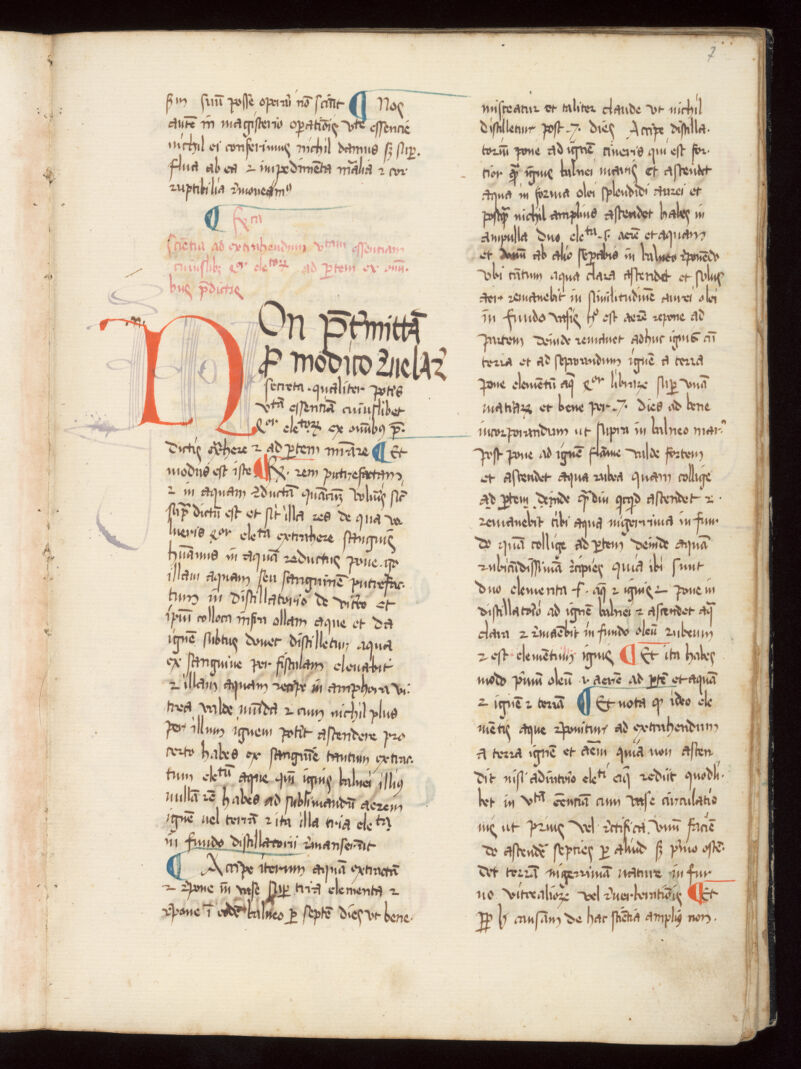 7
suum posse operari non scirent ¶ Nos
autem in magisterio operationis vte essencie
nichil ei conferimus nichil damus sed super
flua ab ea et impedimenta materialia et cor
ruptibilia remoueamus
¶ Exta
scientia ad extrahendum vtam essentiam
cuiuslibet 4or eletorum ad partem ex omni
bus predictis
NOn pretermittam
pro modico reuelare
secreta qualiter potes
vtam essentiam cuiuslibet
4or eletorum ex omnibus pre
dictis extrahere et ad partem mirare ¶ Et
modus est iste ¶ R. rem putrefactam
et in aquam reductam quamcumque volueris sicut
supra dictum est et sit illa res de qua vo
lueris 4or eleta extrahere sanguis
humanus in aquam reductus pone ergo
illam aquam seu sanguinem putrefac
tum in distillatorio de vitro et
ipsum colloca infra ollam aque et da
ignem subtus donec distilletur aqua
ex sanguine per fistulam eleuabit
et illam aquam recipe in amphora vi
trea valde munda et cum nichil plus
per illum ignem poterit ascendere pro
certo habes ex sanguine tantum extrac
tum eletum aque quia ignis balnei illius
nullam rem habes ad sublimandum aerem
ignem uel terram et ita illa tria eleta
in fundo distillatorii remanserunt
¶ Accipe iterum aquam extractam
et repone in vase super tria elementa et
repone in eodem balneo per septem dies vt bene
misceatur et taliter claude vt nichil
distilletur post .7. dies Accipe distilla
torium pone ad ignem cineris qui est for
tior quam ignis balnei maris et ascendet
aqua in forma olei splendidi aurei et
postquam nichil amplius ascendet habes in
ampulla duo eleta .s. aerem et aquam
et vnum ab alio separabis in balneo reponendo
vbi tantum aqua clara ascendet et solus
aer remanebit in similitudinem aurei olei
in fundo vasis hoc est aerem repone ad
partem deinde remanet adhuc ignis cum
terra et ad separandum ignem a terra
pone elementum aque 4or librarum super vnam
matiarum et bene per .7. dies ad bene
incorporandum ut supra in balneo maris
post pone ad ignem flamme valde fortem
et ascendet aqua rubea quam collige
ad partem deinde quamdiu quicquid ascendet et
remanebit tibi aqua nigerrima in fun
do quam collige ad partem deinde aquam
rubicundissimam recipies quia ibi sunt
duo elementa .s. aqua et ignis et pone in
distillatorio ad ignem balnei et ascendet aqua
clara et remanebit in fundo oleum rubeum
et est elementum ignis ¶ Et ita habes
modo primum oleum et aerem ad partem et aquam
et ignem et terram ¶ Et nota quod ideo ele
mentis aque reponitur ad extrahendum
a terra ignem et aerem quia non ascen
dit nisi adiutorio eleti eiusque reducit quodli
bet in vtam centiam cum vase circulatio
nis ut prius vel rectifica vnum facien
do ascendere septies per aliud sed primo osten
det terram nigerrimam nature in fur
no vitrealiorum vel reuerberationis ¶ Et
propter hanc causam de hac scientia amplius non